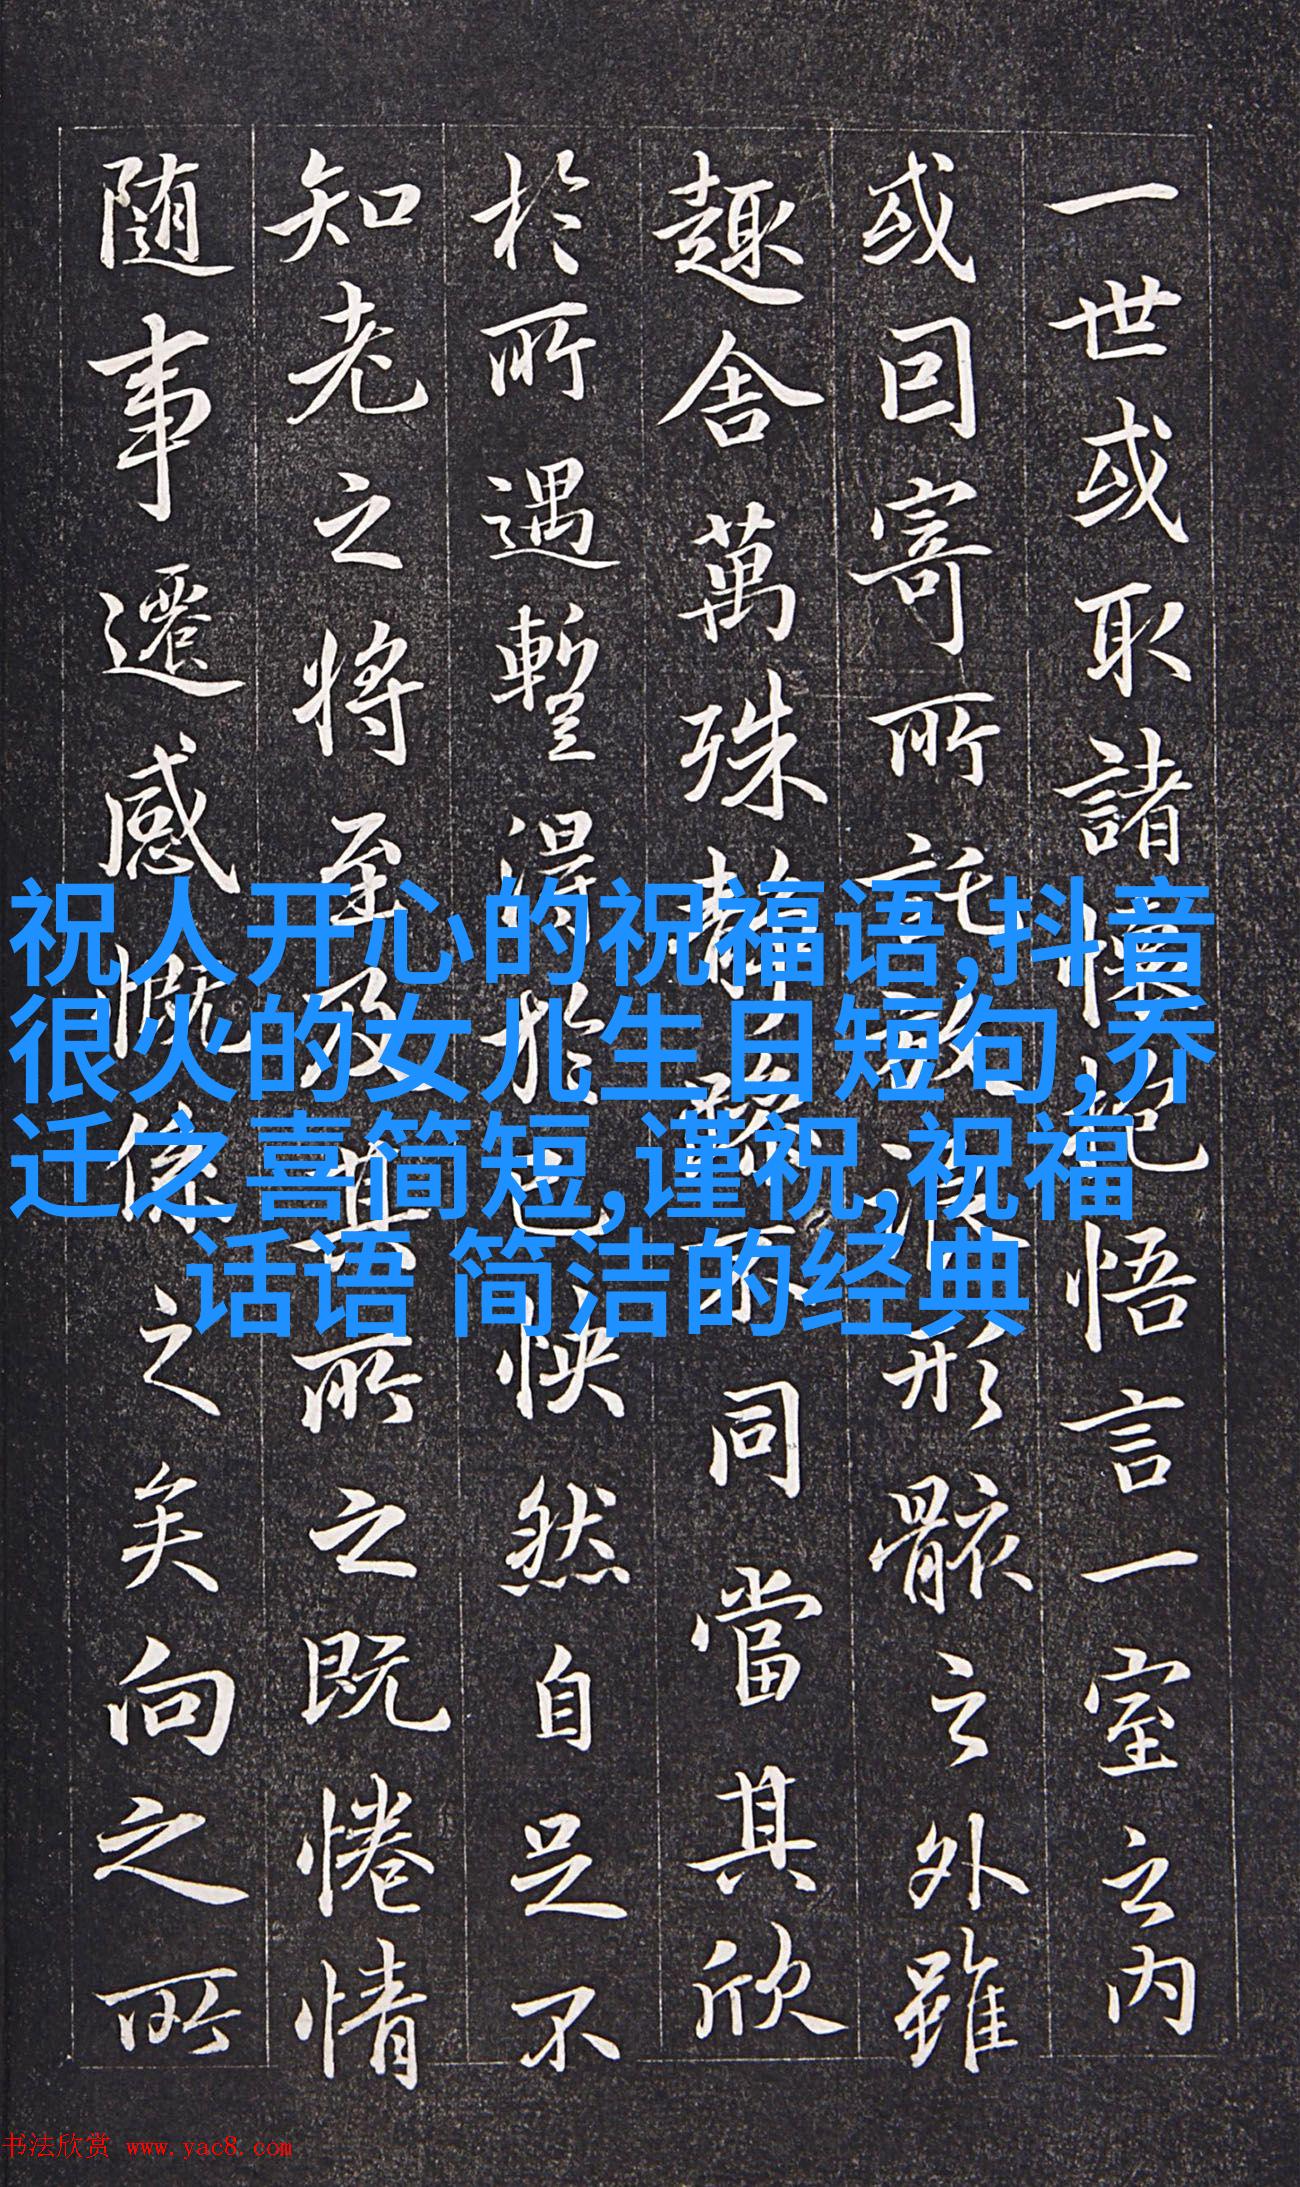 一世或取諸懷抱悟言一室之内
或因寄所託放浪形骸之外雖
趣舍萬殊靜躁不同當其欣
於所遇暫得於己怏然自足不
知老之將至及其所之既惓情
随事遷感慨係之矣向之所
祝人开心的祝福语,抖音
很火的女儿生日短句,乔
迁之喜简短,谨祝,祝福
话语 简洁的经典
书法欣赏 www.yac8.com